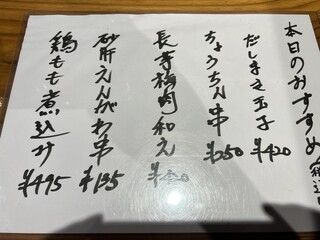 本日のおすすめ
だしまき玉子
¥420
ちょうちん串
¥250
長芋梅肉和え
砂肝えんがわ串
¥135
鶏もも煮込み
¥495